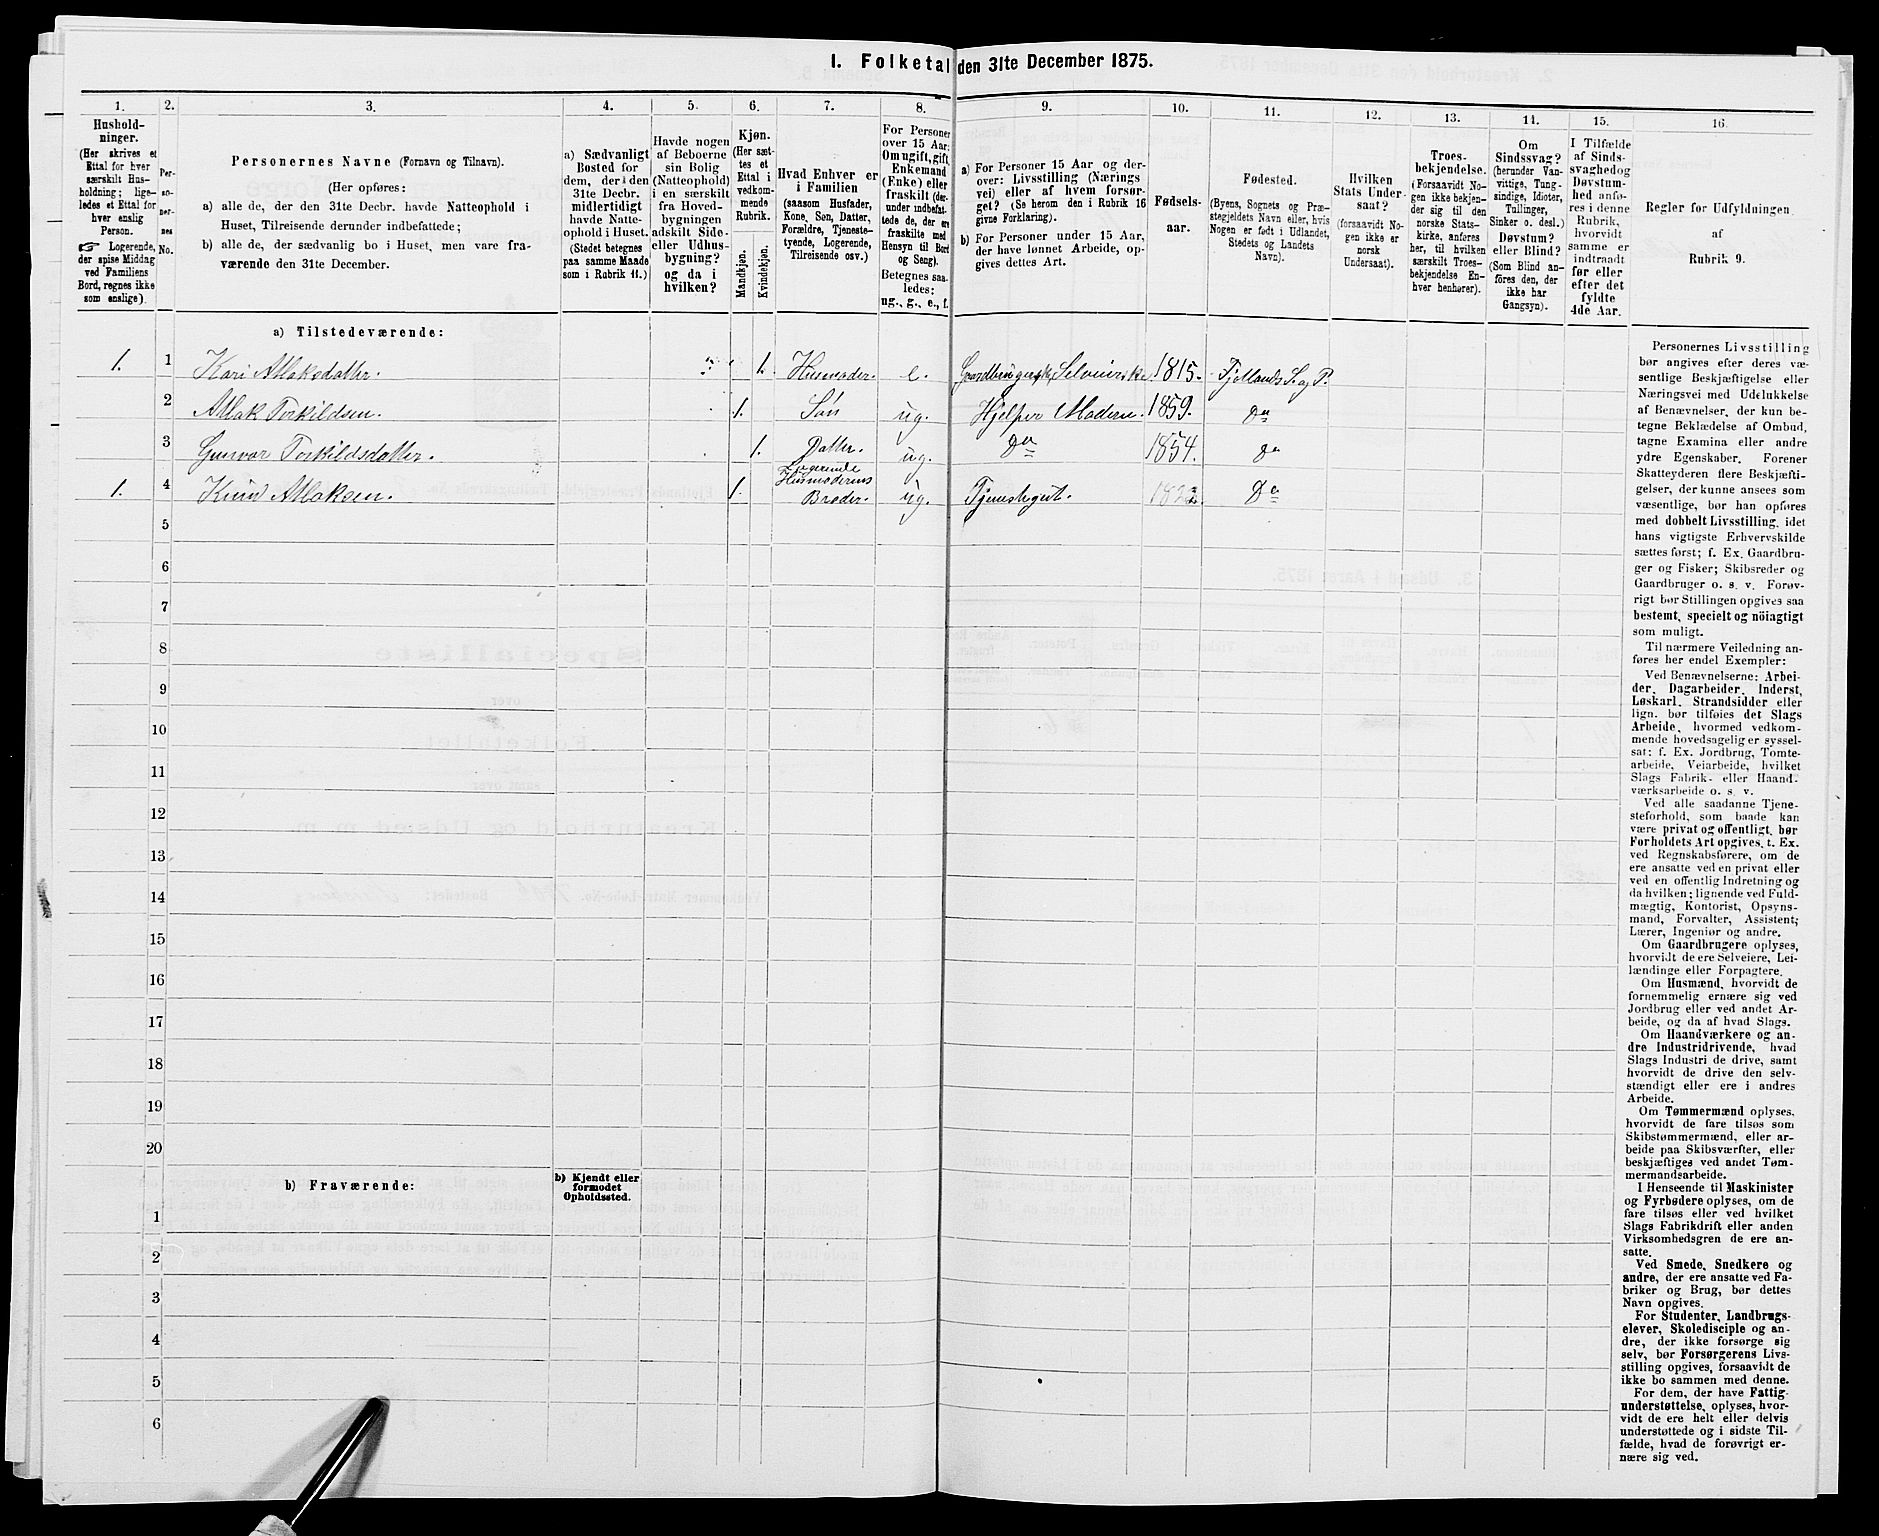 I. Folketal den 31te December 1875.
1. 2. 3. 4. 5. 6. 7. 8. 9. 10. 11. 12. 13. 14. 15. 16.
Hushold-
ninger.
(Her skrives et
Ettal for hver
særskilt Hus-
holdning; lige-
ledes et Ettal for
hver enslig
Person.
☞ Logerende,
der spise Middag
ved Familiens
Bord, regnes ikke
som enslige).
Per-
so-
ner-
nes
No.
Personernes Navne (Fornavn og Tilnavn).
(Her opføres:
a) alle de, der den 31te Decbr. havde Natteophold i
Huset, Tilreisende derunder indbefattede;
b) alle de, der sædvanlig bo i Huset, men vare fra-
værende den 31te December.
a) Sædvanligt
Bosted for
dem, der i den
31te Decbr.
midlertidigt
havde Natte-
ophold i Huset.
(Stedet betegnes
paa samme Maade
som i Rubrik 11.)
Havde nogen
af Beboerne
sin Bolig
(Natteophold)
i en særskilt
fra Hoved-
bygningen
adskilt Side-
eller Udhus-
bygning?
og da i
hvilken?
Kjøn.
(Her sæt-
tes et
Ettal i
vedkom-
mende
Rubrik.
Mandkjøn.
Kvindekjøn.
Hvad Enhver er
i Familien
(saasom Husfader,
Kone, Søn, Datter,
Forældre, Tjeneste-
tyende, Logerende,
Tilreisende osv.)
For Personer
over 15 Aar:
Om ugift, gift,
Enkemand
(Enke) eller
fraskilt (der-
under indbefat-
tede de, der ere
fraskilte med
Hensyn til Bord
og Seng).
Betegnes saa-
ledes:
ug., g., e., f.
a) For Personer 15 Aar og der-
over: Livsstilling (Nærings
vei) eller af hvem forsør-
get? (Se herom den i Rubrik 16
givne Forklaring).
b) For Personer under 15 Aar,
der have lønnet Arbeide, op-
gives dettes Art.
Fødsels-
aar.
Fødested.
(Byens, Sognets og Præ-
stegjeldets Navn eller, hvis
Nogen er født i Udlandet,
Stedets og Landets
Navn).
Hvilken
Stats Under-
saat?
(forsaavidt No-
gen ikke er
norsk
Undersaat).
Troes-
bekjendelse.
(Forsaavidt No-
gen ikke bekjen-
der sig til den
norske Stats-
kirke, anføres
her, til hvilken
særskilt Troes-
bekjendelse En-
hver henhører).
Om
Sindssvag?
(herunder Van-
vittige, Tung-
sindige, Idioter,
Tullinger,
Sinker o. desl.)
Døvstum?
eller Blind?
(Som Blind an-
føres den, der
ikke har
Gangsyn).
I Tilfælde
af Sinds-
svaghed og
Døvstum-
hed anfø-
res i denne
Rubrik,
hvorvidt
samme er
indtraadt
før eller
efter det
fyldte
4de Aar.
Regler for Udfyldningen
af
Rubrik 9.
a) Tilstedeværende:
1. 1 Kari Atlaksdatter. 1. Husmoder. e. Gaardbrugerske Selveierske. 1815. Fjellands S. og P.
2 Atlak Torkildsen. 1. Søn ug. Hjelper Moderen. 1859. Do
3 Gunvor Torkildsdatter. 1. Datter. ug. Do 1854. Do
1. 4 Knud Atlaksen. 1. Logerende Husmoderens Broder. ug. Tjenstegut. Do
5
6
7
8
9
10
11
12
13
14
15
16
17
18
19
20
b) Fraværende:
b) Kjendt eller
formodet
Opholdssted.
1
2
3
4
5
6
Personernes Livsstilling
bør angives efter deres væ-
sentlige Beskjæftigelse eller
Næringsvei med Udelukkelse
af Benævnelser, der kun be-
tegne Beklædelse af Ombud,
tagne Examina eller andre
ydre Egenskaber. Forener
Skatteyderen flere Beskjæfti-
gelser, der kunne ansees som
væsentlige, bør han opføres
med dobbelt Livsstilling, idet
hans vigtigste Erhvervskilde
sættes først; f. Ex. Gaardbru-
ger og Fisker; Skibsreder og
Gaardbruger o. s. v. Forøv-
rigt bør Stillingen opgives saa
bestemt, specielt og nöiagtigt
som muligt.
Til nærmere Veiledning an-
føres her endel Exempler:
Ved Benævnelserne: Arbei-
der, Dagarbeider, Inderst,
Løskarl, Strandsidder eller
lign. bør tilføies det Slags
Arbeide, hvormed vedkom-
mende hovedsagelig er syssel-
sat; f. Ex. Jordbrug, Tomte-
arbeide, Veiarbeide, hvilket
Slags Fabrik- eller Haand-
værksarbeide o. s. v.
Ved alle saadanne Tjene-
steforhold, som baade kan
være privat og offentligt, bør
Forholdets Art opgives, t. Ex.
ved Regnskabsførere, om de
ere ansatte ved en privat eller
ved en offentlig Indretning og
da hvilken; lignende ved Fuld-
mægtig, Kontorist, Opsyns-
mand, Forvalter, Assistent;
Lærer, Ingeniør og andre.
Om Gaardbrugere oplyses,
hvorvidt de ere Selveiere, Lei-
lændinge eller Forpagtere.
Om Husmænd, hvorvidt de
fornemmelig ernære sig ved
Jordbrug eller ved andet Ar-
beide, og da af hvad Slags.
Om Haandværkere og an-
dre Industridrivende, hvad
Slags Industri de drive, samt
hvorvidt de drive den selv-
stændigt eller ere i andres
Arbeide.
Om Tømmermænd oplyses,
hvorvidt de fare tilsøs som
Skibstømmermænd, eller ar-
beide paa Skibsværfter, eller
beskjæftiges ved andet Tøm-
mermandsarbeide.
I Henseende til Maskinister
og Fyrbødere oplyses, om de
fare tilsøs eller ved hvilket
Slags Fabrikdrift eller anden
Virksomhedsgren de ere an-
satte.
Ved Smede, Snedkere og
andre, der ere ansatte ved Fa-
briker og Brug, bør dettes
Navn opgives.
For Studenter, Landbrugs-
elever, Skoledisciple og an-
dre, der ikke forsørge sig
selv, bør Forsørgerens Livs-
stilling opgives, forsaavidt de
ikke bo sammen med denne.
For dem, der have Fattig-
understøttelse, oplyses, hvor-
vidt de ere helt eller delvis
understøttede og i sidste Til-
fælde, hvad de forøvrigt er-
nære sig ved.